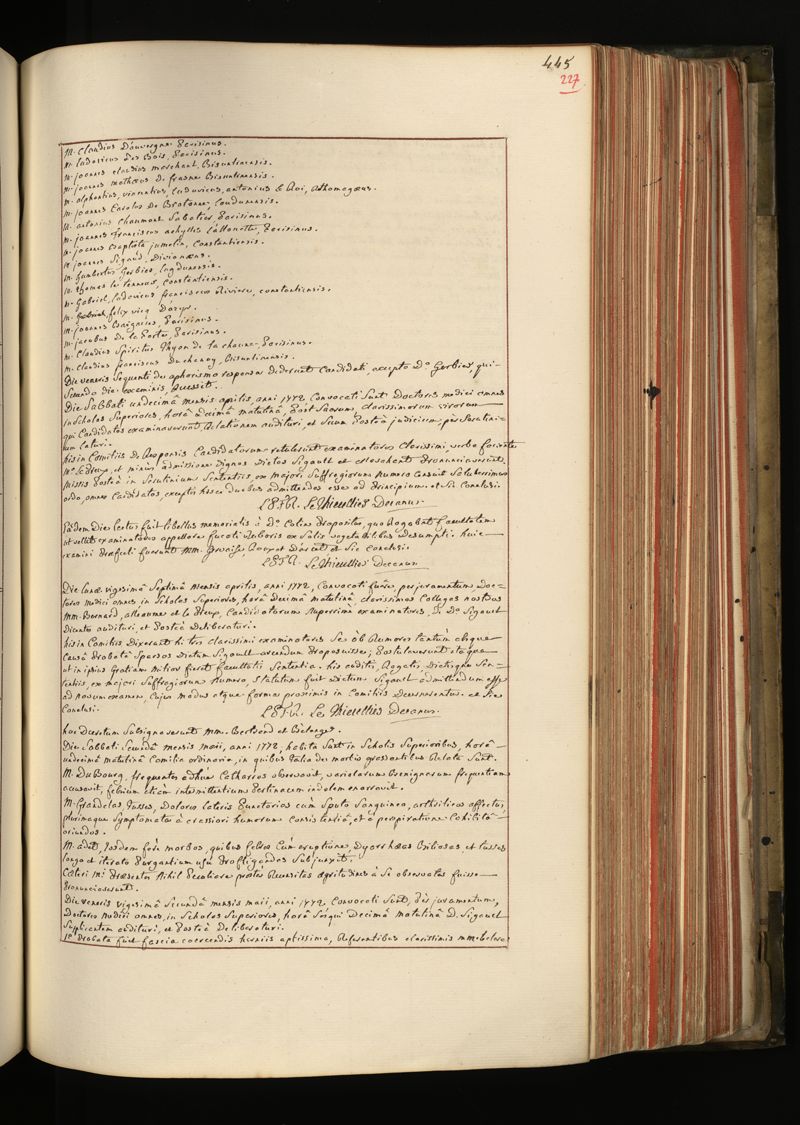 445
227
M. Claudius Dauvergne Parisinus.
M. ludovicus Des Bois, Parisinus.
M. joannes claudius marchant, Bisuntinensis.
M. joannes mathæus De frasne Bisuntinensis.
M. alphontius, vincentius, ludovicus, antonius Le Roi, Rhomagæus.
M. joannes Carolus De Loudunensis.
M. antonius chaumont Sabatier, Parisinus.
M. joannes franciscus achylles Lallouette, Parisinus.
M. joannes Baptista jumelin, Constantiensis.
M. joannes Sigaud, Divionæus.
M. humbertus Gerbier, lugdunensis.
M. Thomas le Vennous, Constantiensis.
M. Gabriel, ludovicus franciscus Riviere, constantiensis.
M. felix vicq D'azyr.
M. joannes Parisinus.
M. jacobus De la Porte, Parisinus.
M. Claudius Spiritus Thyon de la chaume Parisinus.
M. Claudius franciscus Duchanoy, Bisuntinensis.
Die veneris Sequenti de aphorismo responsa dederunt Candidati, excepto D.º Gerbier, qui
Secundo die examinis, Successit.
Die Sabbati undecimâ mensis aprilis, anni 1772, Convocati Sunt Doctores medici omnes
in scholas Superiores, horâ Decimâ matutinâ, Post Sacrum, clarissimorum virorum
qui Candidatos examinaverunt Relationem audituri, et Suum Posteà judicium per Scrutini=
um laturi.
his in Comitiis de Responsis Candidatorum retulerunt examinatores Clarissimi verba faciente
M.º le Preux, et minus admissione Dignos Dictos Sigault et Pronunciaverunt
Missis Posteà in Scrutinium Sententiis, ex majori Suffragiorum numero Censuit Saluberrimus
ordo, omnes Candidatos, exceptis hisce duobus admittendos esse ad Principium. et Sic Conclusi.
L.P.F.R. Le Thieullier Decanus
Eâdem Die lectus fuit libellus memorialis à D.º Colin Propositus, quo Rogabat facultatem
ut vellet examinatores appellare fucati Ruboris ex Solis vegetabilibus Desumpti. huic
examini Præfecti fuerunt MM. Gervaise, Roux et D'arcet et Sic Conclusi.
L.P.F.R. Le Thieullier Decanus
Die lunæ vigesimâ Septimâ Mensis aprilis, anni 1772, Convocati fuere per juramentum Doc=
tores medici omnes, in Scholas Superiores, horâ Decimâ matutinâ, clarissimos Collegas nostros
MM. Bernard, alleaume et le Preux, Candidatorum nuperrimè examinatores, De D.º Sigault
Dicentes audituri, et Posteà Deliberaturi.
his in Comitiis Dixerunt hi tres clarissimi examinatores Se ob Rumores tantùm absque
Causâ Probatâ Sparsos Dictum Sigault arcendum Proposuisse; Postulaverunt itaque
ut in ipsius Gratiam Mitior fieret facultatis Sententia. his auditis, Rogatis, Dictisque Sen=
tentiis, ex majori Suffragiorum Numero, Statutum fuit Dictum Sigault admittendum esse
ad novum examen, Cujus modus atque forma proximis in Comitiis Decernerentur. et Sic
Conclusi.
L.P.F.R. Le Thieullier Decanus.
hoc Decretum Subsignaverunt MM. Bertrand et Belanger.
Die Sabbati Secundâ mensis maii, anni 1772, habita Sunt in Scholis Superioribus, horâ
undecimâ matutinâ Comitia ordinaria, in quibus talia de morbis grassantibus Relata Sunt.
M. Dubourg, frequentes adhùc Catharros observavit, variolarum Benignarum frequentiam
accusavit, febrium etiàm intermittentium Pertinacem indolem enarravit.
M. Grandelas, Tusses, Dolores lateris Punctorios cùm Sputo Sanguineo, arthriticos affectus,
plurimaque Symptomata à crassiori humorum Consistentiâ, et à perspiratione Cohibitâ
oriundos.
M. adet, Eosdem ferè morbos, quibus febres Cùm eruptione, Dyarrhæas Biliosas, et tusses
longo et iterato Purgantium usu Profligandas Subjunxit.
Cæteri M.i Præsentes Nihil Peculiare præter Recensitas ægritudines à Se observatas fuisse
Pronunciaverunt.
Die veneris vigesimâ Secundâ mensis maii, anni 1772. Convocati Sunt, per juramentum,
Doctores medici omnes, in Scholas Superiores, horâ Sesqui Decimâ matutinâ D. Sigault
Supplicantem audituri, et Posteà Deliberaturi.
1.º Probata fuit fascia coercendis herniis aptissima, Referentibus clarissimis MM.